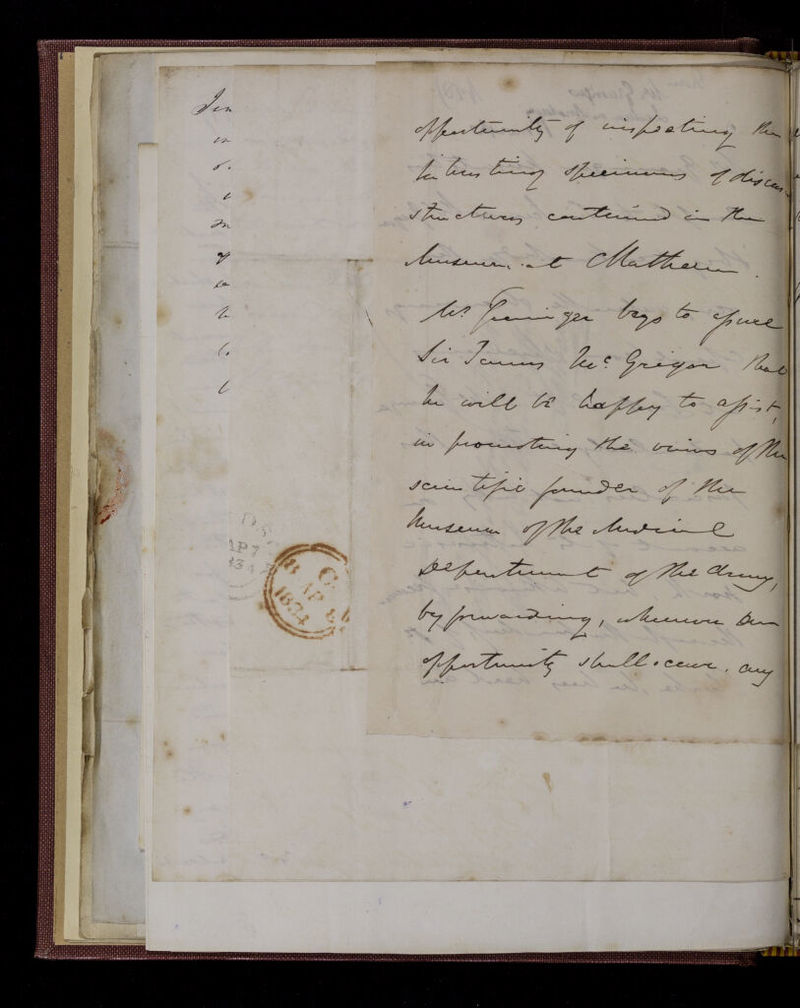 opportunity of inspecting the
interesting specimens of diseased
structures contained in the
Museum at Chatham.
Mr. Grainger begs to assure
Sir James McGrigor that
he will be happy to assist,
in promoting the views of the
scientific founder of the
Museum of the Medical
Department of the Army,
by forwarding, whenever an
opportunity shall occur, any
8 AP 8
1834
AP 7